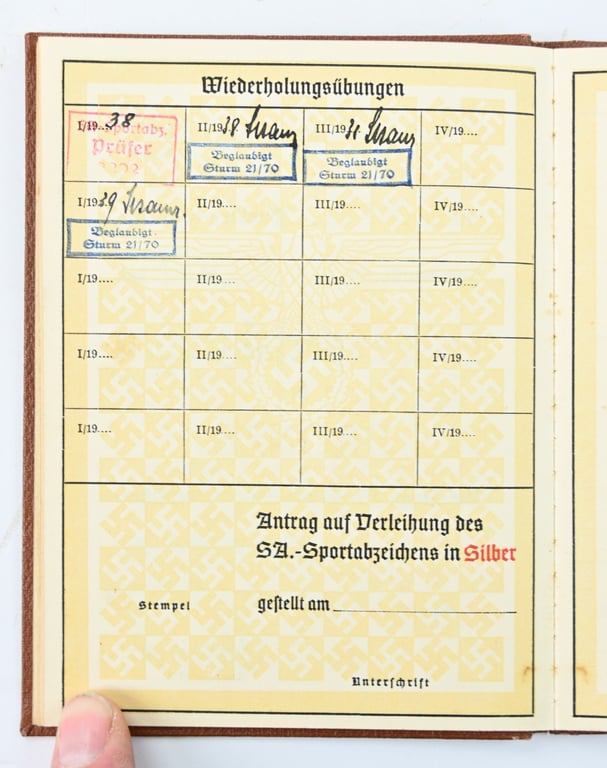 Wiederholungsübungen
I/19..38 II/1938 III/1938 IV/19....
Sportabz.
Prüfer
Beglaubigt
Sturm 21/70
Beglaubigt
Sturm 21/70
I/1939 II/19.... III/19.... IV/19....
Beglaubigt
Sturm 21/70
I/19.... II/19.... III/19.... IV/19....
I/19.... II/19.... III/19.... IV/19....
I/19.... II/19.... III/19.... IV/19....
Antrag auf Verleihung des
SA.-Sportabzeichens in Silber
Stempel gestellt am
Unterschrift